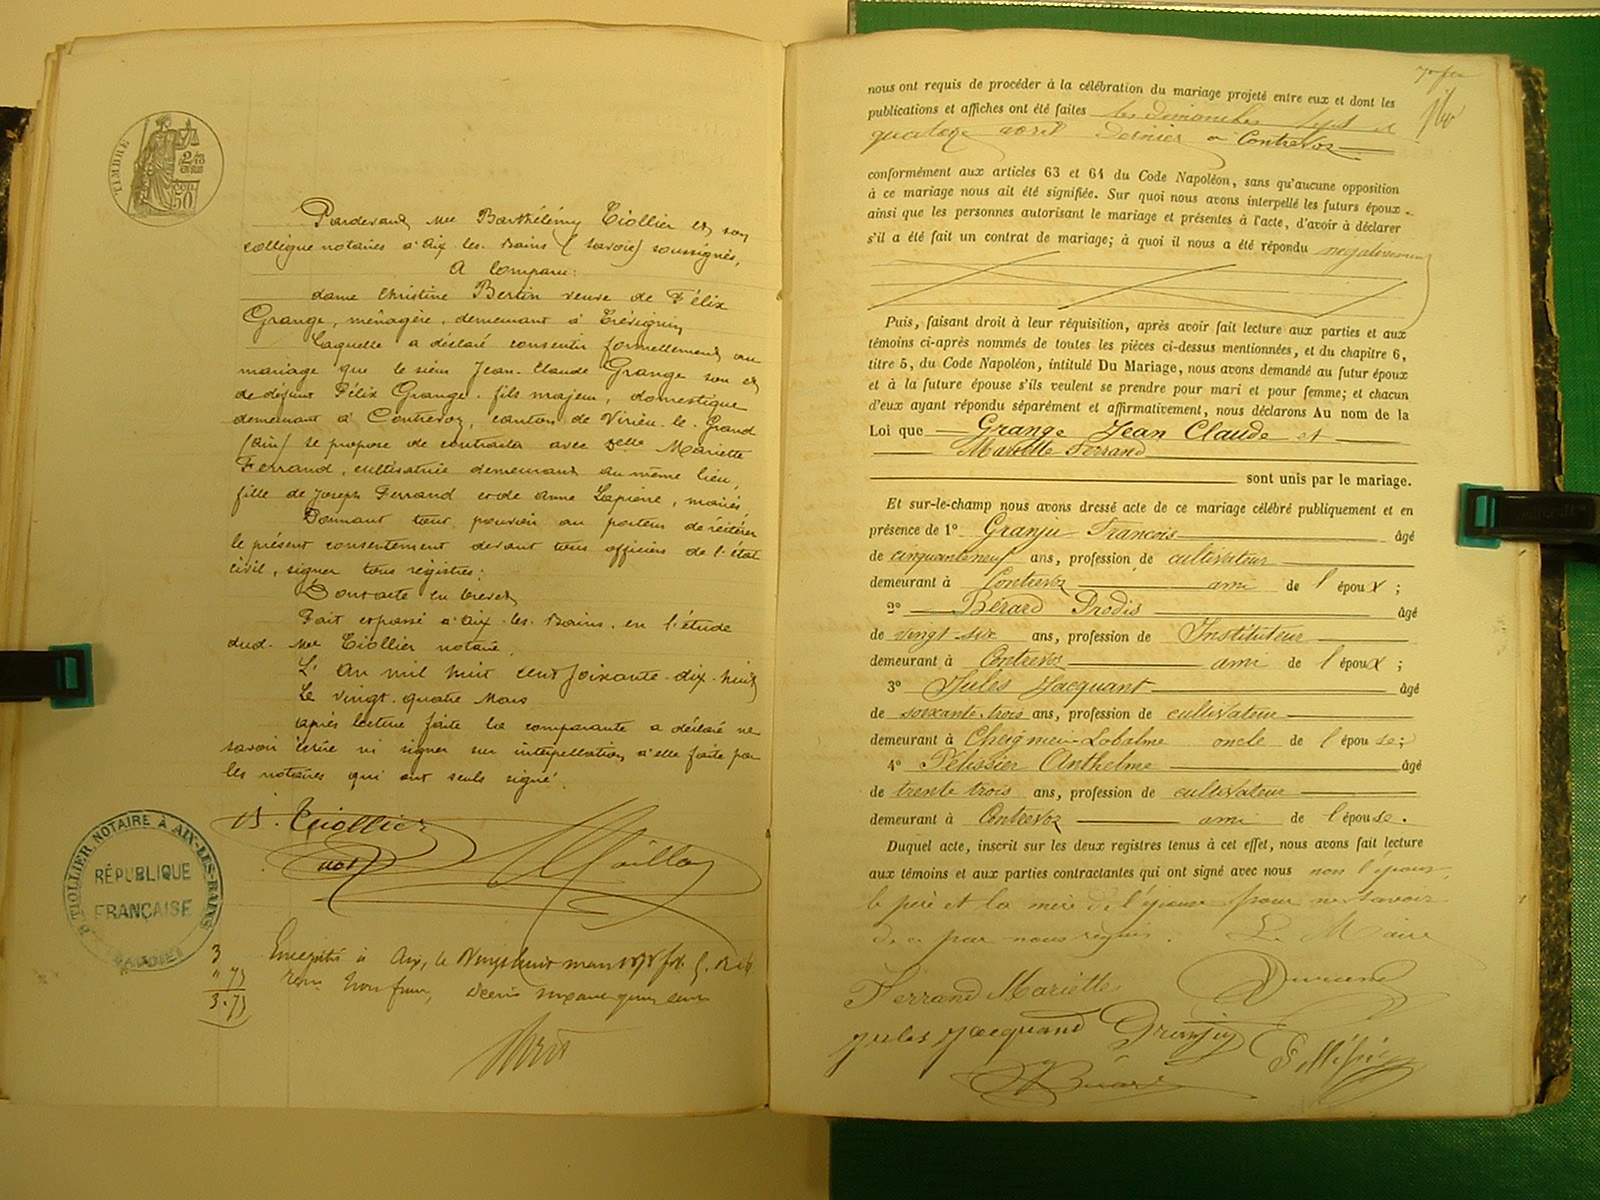 TIMBRE
2/10 en sus
50
Pardevant Me Barthélémy Tiollier et son
collègue notaires à Aix-les-Bains (Savoie) soussignés,
A Comparu:
dame Christine Bertin veuve de Félix
Grange, ménagère, demeurant à Trévignin
Laquelle a déclaré consentir formellement au
mariage que le sieur Jean-Claude Grange son et
de défunt Félix Grange, fils majeur, domestique
demeurant à Contrevoz, canton de Virieu-le-Grand
(Ain) se propose de contracter avec Delle Mariette
Ferrand, cultivatrice demeurant au même lieu,
fille de Joseph Ferrand et de Anne Lapierre, mariés,
Donnant tout pouvoir au porteur de réitérer
le présent consentement devant tous officiers de l'état
civil, signer tous régistres;
Dont acte en brevet
Fait et passé à Aix-les-Bains, en l'étude
dud. Me Tiollier notaire,
L'An mil huit cent soixante-dix-huit
Le vingt-quatre Mars
après lecture faite la comparante a déclaré ne
savoir écrire ni signer sur interpellation, à elle faite par
les notaires qui ont seuls signé.
B. Tiollier
not
B. TIOLLIER NOTAIRE À AIX-LES-BAINS
RÉPUBLIQUE
FRANÇAISE
SAVOIE
3
" 73
3.73
Enregistré à Aix, le Vingt huit mars 1878
trois francs, décimes soixante quinze
nous ont requis de procéder à la célébration du mariage projeté entre eux et dont les
publications et affiches ont été faites les dimanches sept et
quatorze avril dernier à Contrevoz
conformément aux articles 63 et 64 du Code Napoléon, sans qu'aucune opposition
à ce mariage nous ait été signifiée. Sur quoi nous avons interpellé les futurs époux
ainsi que les personnes autorisant le mariage et présentes à l'acte, d'avoir à déclarer
s'il a été fait un contrat de mariage; à quoi il nous a été répondu négativement
Puis, faisant droit à leur réquisition, après avoir fait lecture aux parties et aux
témoins ci-après nommés de toutes les pièces ci-dessus mentionnées, et du chapitre 6,
titre 5, du Code Napoléon, intitulé Du Mariage, nous avons demandé au futur époux
et à la future épouse s'ils veulent se prendre pour mari et pour femme; et chacun
d'eux ayant répondu séparément et affirmativement, nous déclarons Au nom de la
Loi que Grange Jean Claude et
Mariette Ferrand
sont unis par le mariage.
Et sur-le-champ nous avons dressé acte de ce mariage célébré publiquement et en
présence de 1° Granju François âgé
de cinquante neuf ans, profession de cultivateur
demeurant à Contrevoz ami de l'époux;
2° Bérard Prodis âgé
de vingt-six ans, profession de Instituteur
demeurant à Contrevoz ami de l'époux;
3° Jules Jacquant âgé
de soixante-trois ans, profession de cultivateur
demeurant à Cheignieu-Labalme oncle de l'épouse;
4° Pélissier Anthelme âgé
de trente trois ans, profession de cultivateur
demeurant à Contrevoz ami de l'épouse.
Duquel acte, inscrit sur les deux registres tenus à cet effet, nous avons fait lecture
aux témoins et aux parties contractantes qui ont signé avec nous non l'époux,
le père et la mère de l'épouse pour ne savoir
de ce par nous requis. Le Maire
Ferrand Mariette
jules jacquand Granju Pellissier
Bérard